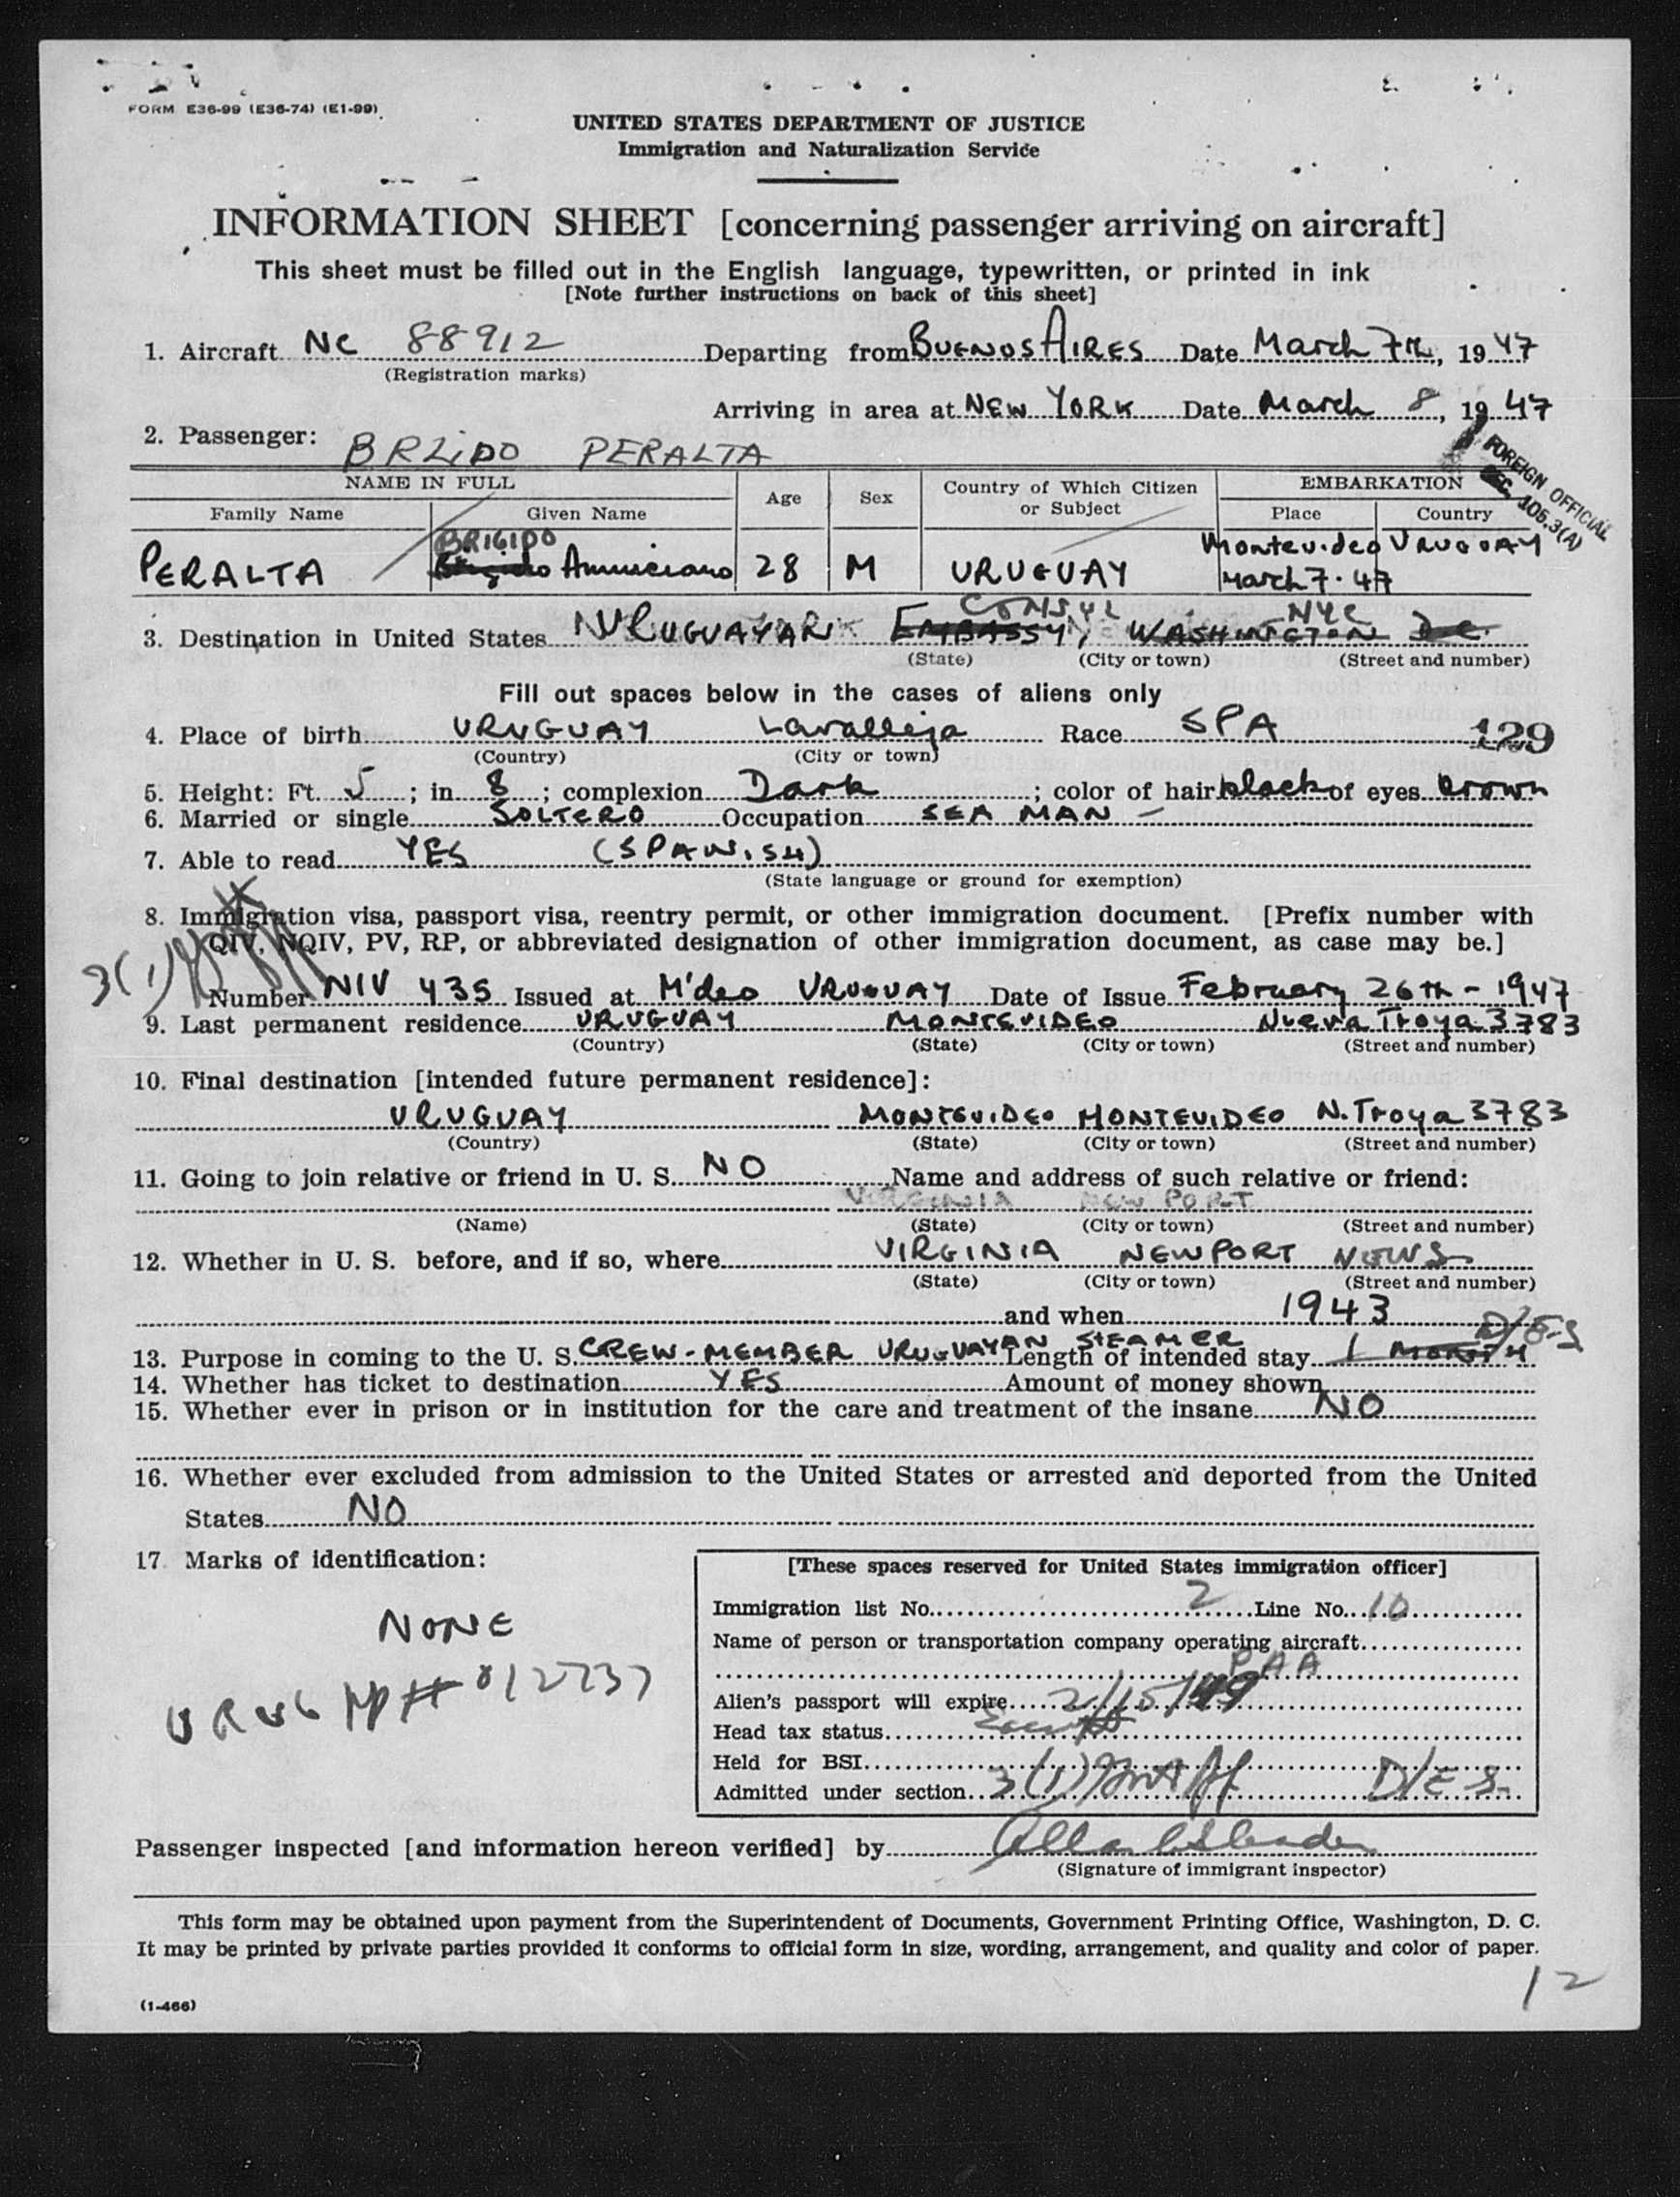 FORM E36-99 (E36-74) (E1-99)
UNITED STATES DEPARTMENT OF JUSTICE
Immigration and Naturalization Service
INFORMATION SHEET [concerning passenger arriving on aircraft]
This sheet must be filled out in the English language, typewritten, or printed in ink
[Note further instructions on back of this sheet]
1. Aircraft NC 88912 Departing from BUENOS AIRES Date March 7th, 1947
(Registration marks)
Arriving in area at NEW YORK Date March 8, 1947
2. Passenger: PERALTA
FOREIGN OFFICIAL
SEC. 105.3(A)
NAME IN FULL Age Sex Country of Which Citizen or Subject EMBARKATION
Family Name Given Name Place Country
PERALTA BRIGIDO 28 M URUGUAY Montevideo URUGUAY
March 7·47
CONSUL NYC
3. Destination in United States URUGUAYAN EMBASSY, WASHINGTON D.C.
(State) (City or town) (Street and number)
Fill out spaces below in the cases of aliens only
4. Place of birth URUGUAY Lavalleja Race SPA 129
(Country) (City or town)
5. Height: Ft. 5; in. 8; complexion Dark; color of hair black of eyes brown
6. Married or single SOLTERO Occupation SEA MAN –
7. Able to read YES (SPANISH)
(State language or ground for exemption)
8. Immigration visa, passport visa, reentry permit, or other immigration document. [Prefix number with
QIV, NQIV, PV, RP, or abbreviated designation of other immigration document, as case may be.]
3(1)
Number NIV 435 Issued at M'deo URUGUAY Date of Issue February 26th - 1947
9. Last permanent residence URUGUAY MONTEVIDEO Nueva Troya 3783
(Country) (State) (City or town) (Street and number)
10. Final destination [intended future permanent residence]:
URUGUAY MONTEVIDEO MONTEVIDEO N. Troya 3783
(Country) (State) (City or town) (Street and number)
11. Going to join relative or friend in U. S. NO Name and address of such relative or friend:
VIRGINIA NEW PORT
(Name) (State) (City or town) (Street and number)
12. Whether in U. S. before, and if so, where VIRGINIA NEWPORT NEWS
(State) (City or town) (Street and number)
and when 1943
13. Purpose in coming to the U. S. CREW-MEMBER URUGUAYAN STEAMER Length of intended stay 1 MONTH D/E-S
14. Whether has ticket to destination YES Amount of money shown
15. Whether ever in prison or in institution for the care and treatment of the insane NO
16. Whether ever excluded from admission to the United States or arrested and deported from the United
States NO
17. Marks of identification:
NONE
[These spaces reserved for United States immigration officer]
Immigration list No. 2 Line No. 10
Name of person or transportation company operating aircraft
PAA
Alien's passport will expire 2/15/49
Head tax status
Held for BSI
Admitted under section 3(1) D/E-S
Passenger inspected [and information hereon verified] by
(Signature of immigrant inspector)
This form may be obtained upon payment from the Superintendent of Documents, Government Printing Office, Washington, D. C.
It may be printed by private parties provided it conforms to official form in size, wording, arrangement, and quality and color of paper.
12
(1-466)